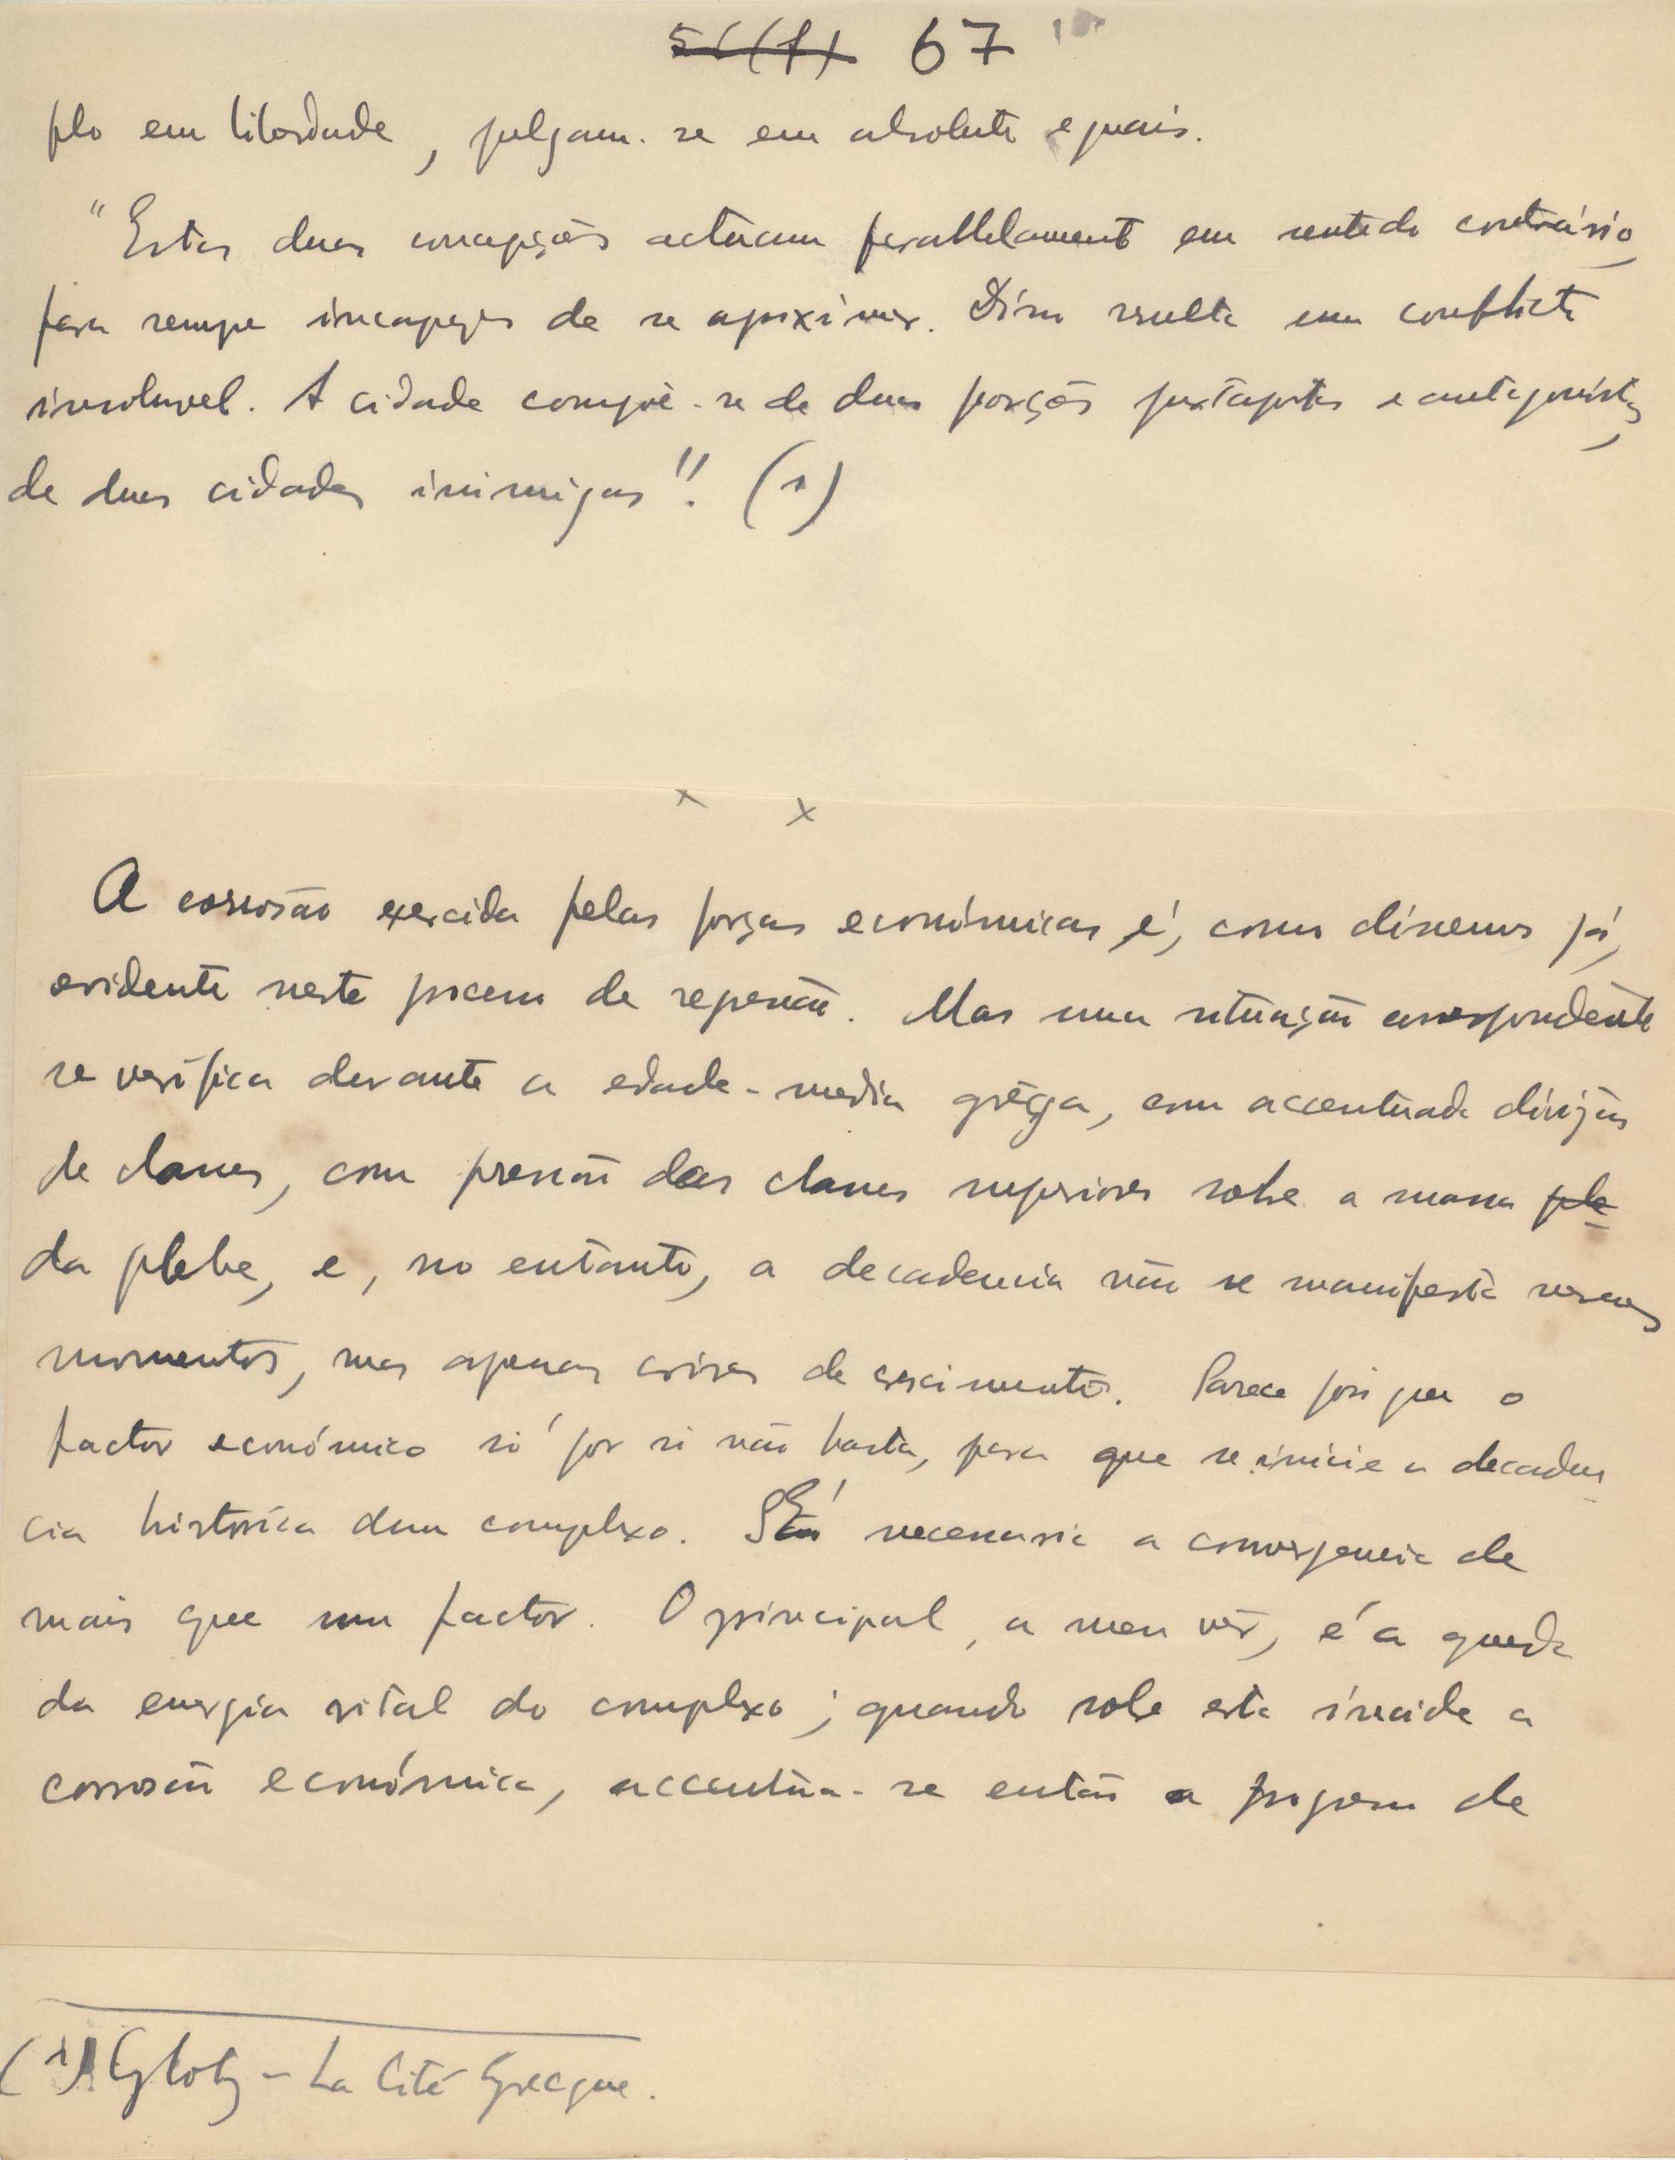 67
plo em liberdade, julgam-se em absoluto eguais.
"Estas duas concepções actuam parallelamente em sentido contrário,
para sempre incapazes de se aproximar. Disso resulta um conflicto
insoluvel. A cidade compõe-se de duas porções justapostas e antagonistas,
de duas cidades inimigas". (1)
x x
A corrosão exercida pelas forças económicas é, como dissemos já,
evidente neste processo de repressão. Mas uma situação correspondente
se verifica durante a edade-media grêga, com accentuada divisão
de classes, com pressão das classes superiores sobre a massa ple
da plebe, e, no entanto, a decadencia não se manifesta nesses
momentos, mas apenas crises de crescimento. Parece pois que o
factor económico só por si não basta, para que se inicie a decaden
cia historica dum complexo. É necessaria a convergencia de
mais que um factor. O principal, a meu vêr, é a queda
da energia vital do complexo; quando sobe esta incide a
corrosão económica, accentua-se então a de
(1) Glotz – La Cité Grecque.